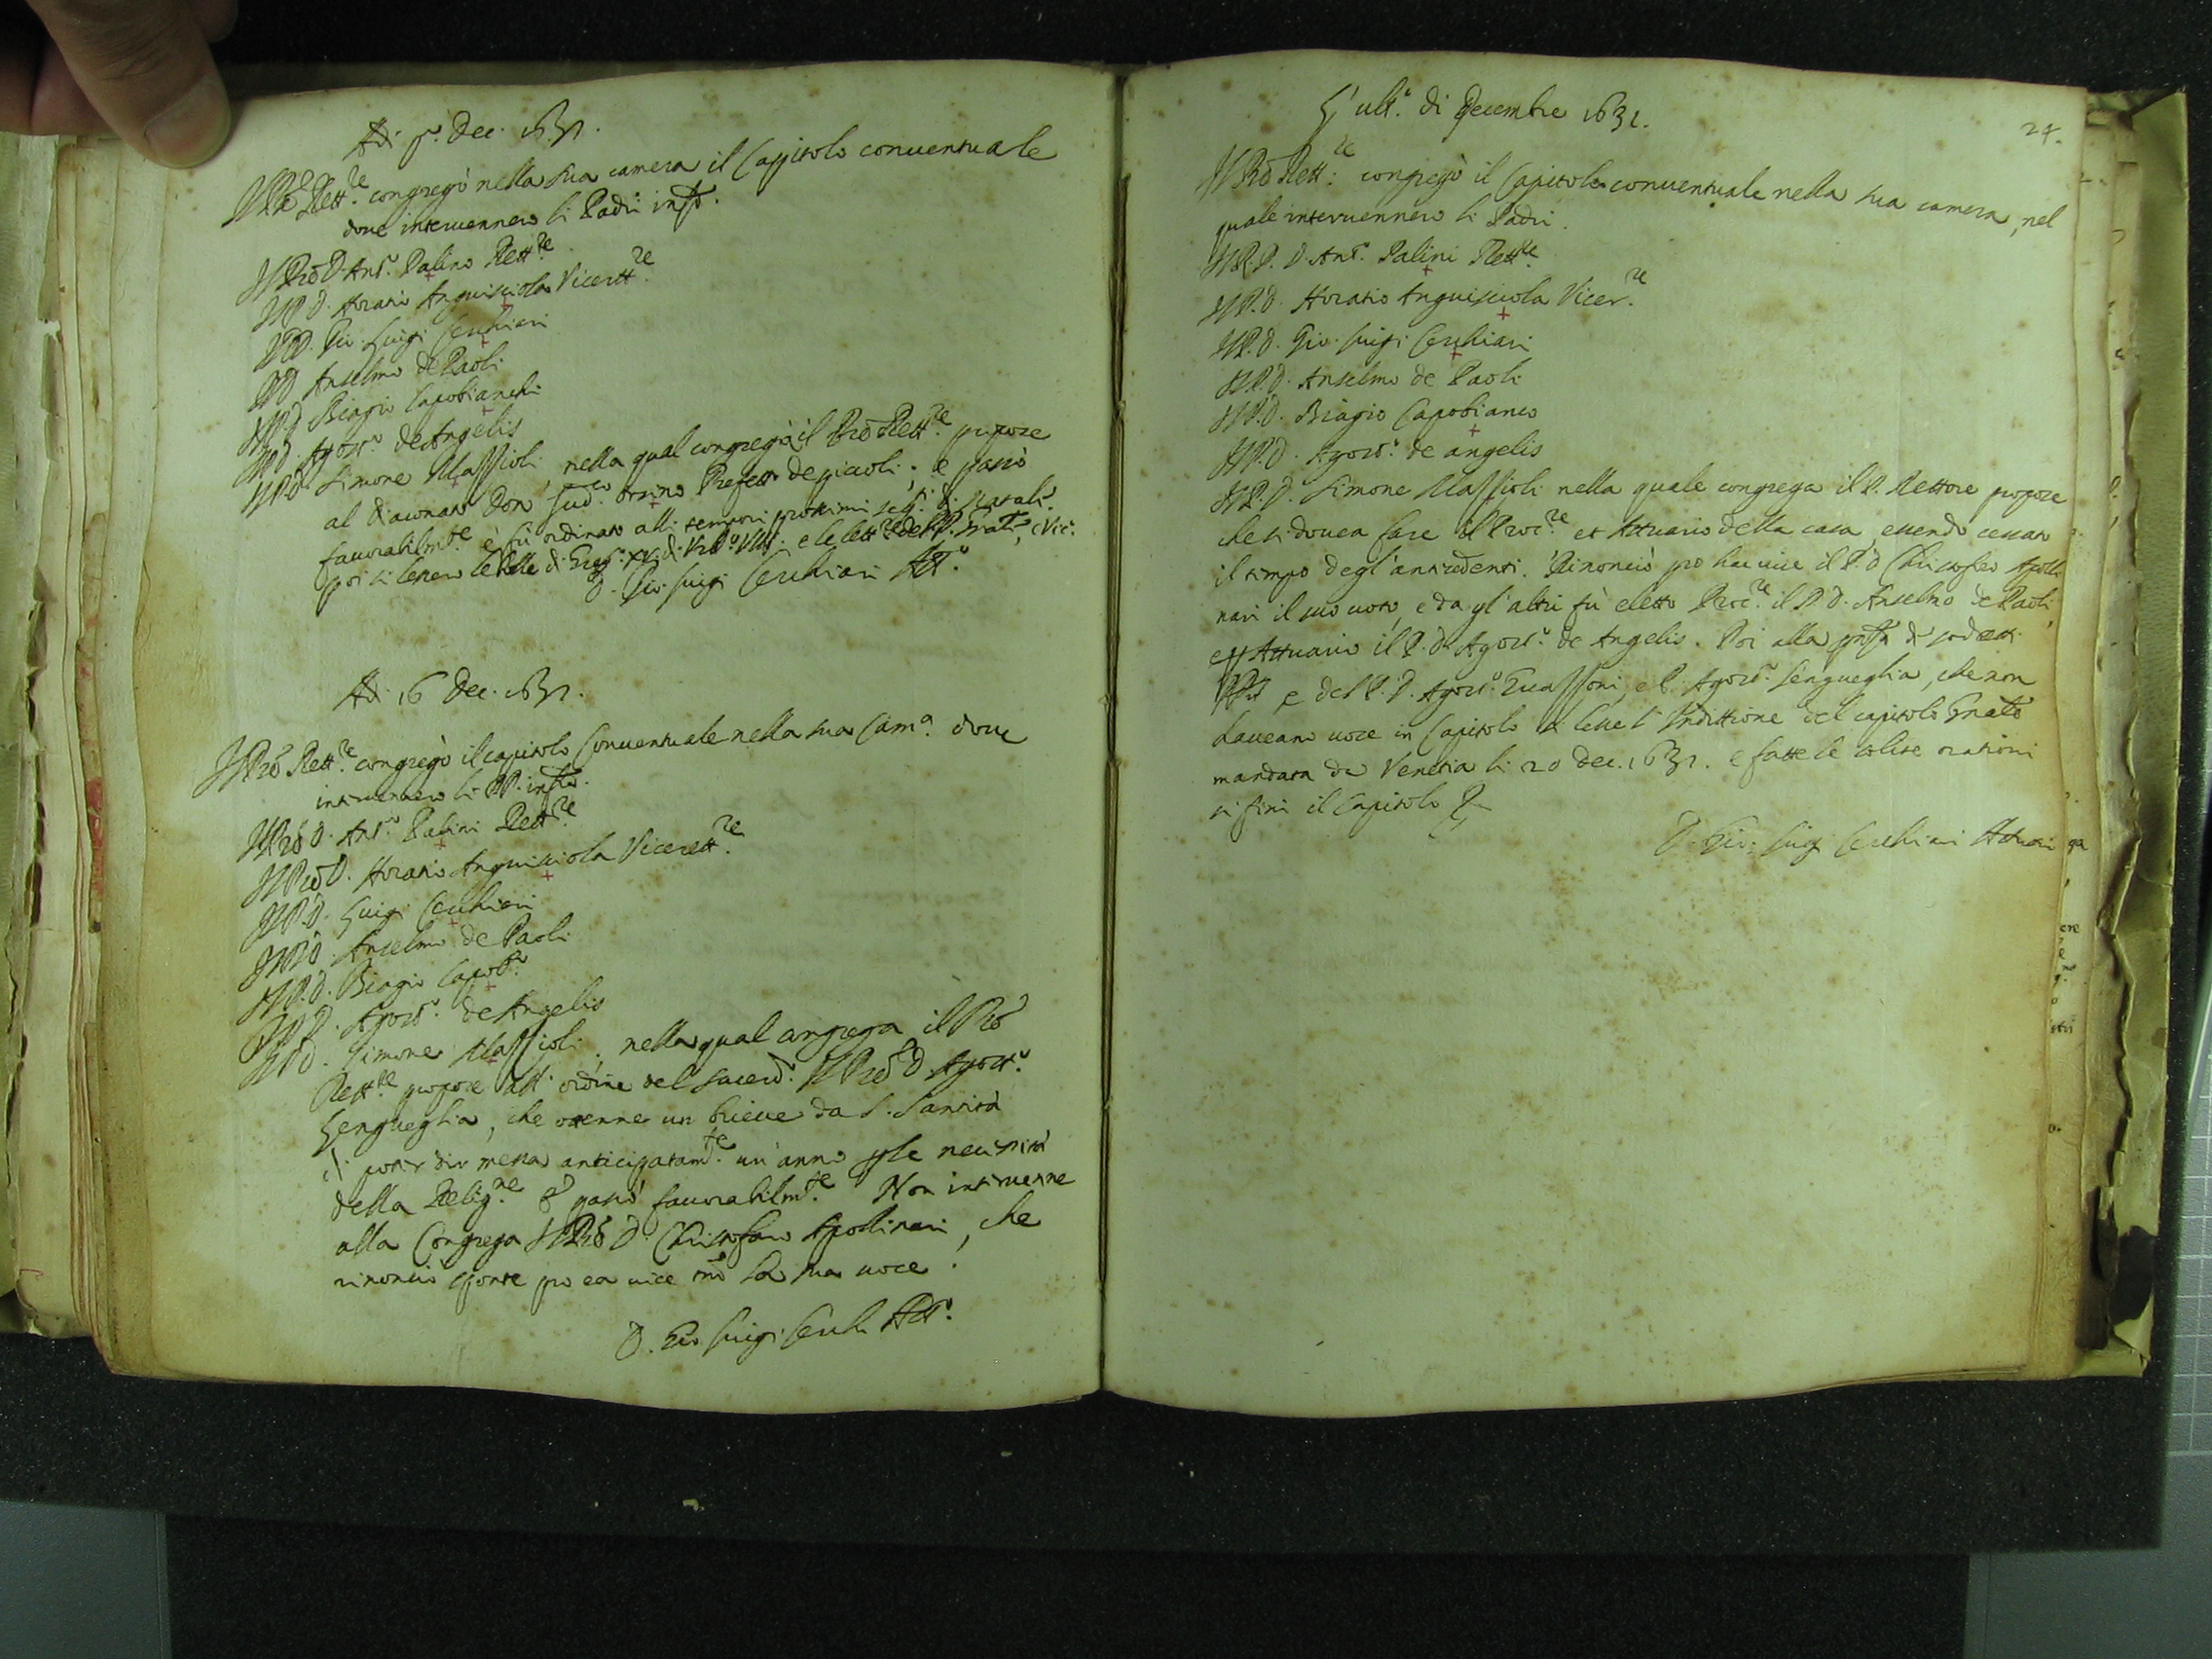 Adi 5. Dec. 1631.
Il Pre Rett.re congregò nella sua camera il Capitolo conuentuale
doue interuennero li Padri inftti.
Il Pre D Ant.o Palino Rett.re
Il P D. Horatio Anguisciola Vicerett.re
Il P D. Gio. Luigi Cerchiari
Il P D Anselmo de Paoli
Il P D Biagio Capobianchi
Il P D. Agost.o de Angelis
Il P D. Simone Massioli, nella qual congrega il Pre Rett.re propose
al Diaconato Don Lud.co Orsino Prefetto de piccoli; e passò
fauorabilm.te è fù ordinato alli tempori prossimi
poi si lessero le Bolle di Greg. XV. di Vrb.o VIII. e le lett.re del P.
D. Gio. Luigi Cerchiari Att.o
Adi 16 Dec. 1631.
Il Pre Rett.re congregò il capitolo Conuentuale nella sua Cam.a doue
interuennero li PP. inftti.
Il Pre D. Ant.o Palini Rett.re
Il Pre D. Horatio Anguisciola Vicerett.re
Il P. D. Luigi Cerchiari
Il Pre D. Anselmo de Paoli
Il P. D. Biagio Capob.o
Il P D. Agost.o de Angelis
Il P D. Simone Massioli. nella qual congrega il Pre
Rett.re propose all' ordine del sacerd.o Il Pre D. Agost.o
Lengueglia, che ottenne un breue da S. Santità
di poter dir messa anticipatam.te un' anno p le necessità
della Relig.ne & passò fauorabilm.te Non interuenne
alla Congrega Il Pre D. Christoforo Apollinari, che
rinonciò sponte pro ea uice la sua uoce.
D. Gio. Luigi Cerch. Att.o
24.
L' ult.o di Decembre 1631.
Il Pre Rett.re congregò il Capitolo conuentuale nella sua camera, nel
quale interuennero li Padri.
Il R. P. D. Ant.o Palini Rett.re
Il P. D. Horatio Anguisciola Vicer.re
Il P. D. Gio. Luigi Cerchiari
Il P. D. Anselmo de Paoli
Il P. D. Biagio Capobianco
Il P. D. Agost.o de angelis
Il P. D. Simone Massioli nella quale congrega il P. Rettore propose
che si douea fare il Proc.re et Attuario della casa, essendo cessato
il tempo degl' antecedenti. Rinonciò pro hac uice il P. D Christoforo Apolli
nari il suo uoto, e da gl' altri fù eletto Proc.re il P. D. Anselmo de Paoli,
et Attuario il P. D. Agost.o de Angelis. Poi alla pnza di sodetti
PP. e del P. D. Agost.o Guassoni, e P. Agost.o Lengueglia, che non
haueano uoce in Capitolo si lesse l' Indittione del capitolo Gnale
mandata da Venetia li 20 dec. 1631. e fatte le solite orationi
si finì il Capitolo
D. Gio: Luigi Cerchiari Attuari